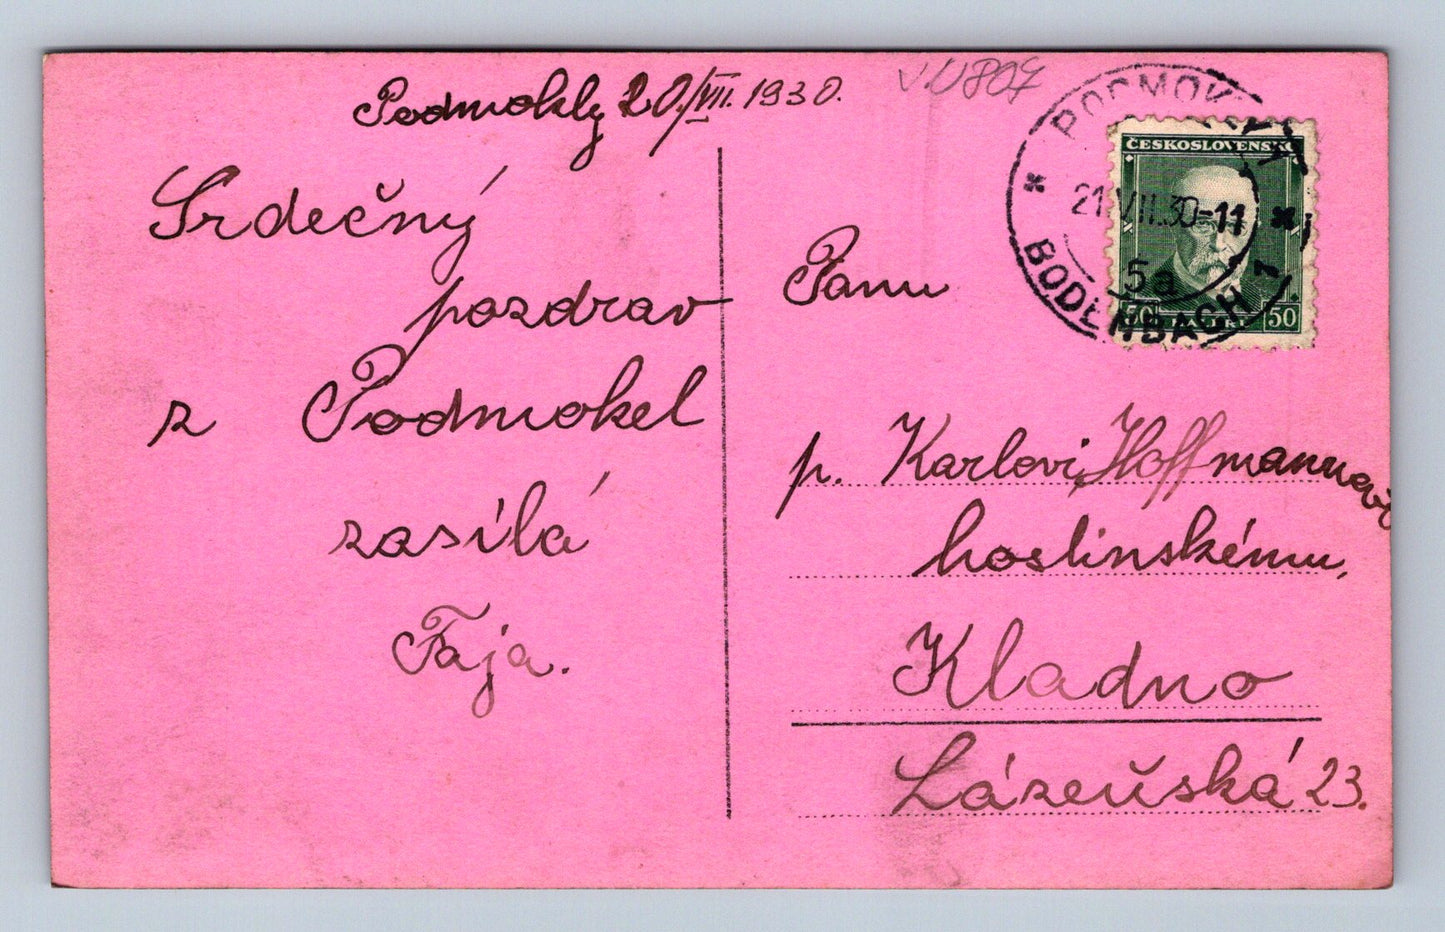 Podmokly 20./VII. 1930.
Srdečný
pozdrav
z Podmokel
zasílá
Fája.
PODMOKLY
21.VII.30-11
5a
BODENBACH 1
ČESKOSLOVENSKO
50 50
Panu
p. Karlovi Hoffmannovi
hostinskému,
Kladno
Lázeňská 23.